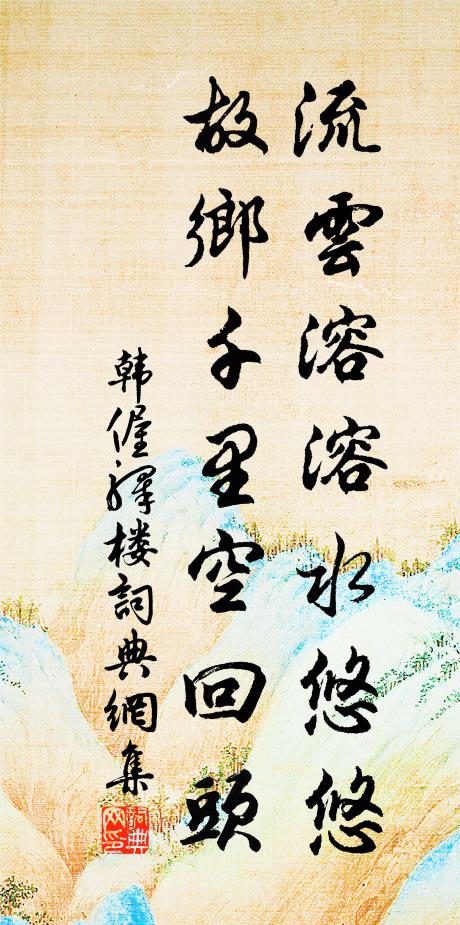 流雲溶溶水悠悠
故鄉千里空回頭
韩偓驛楼詞典網集
詞典